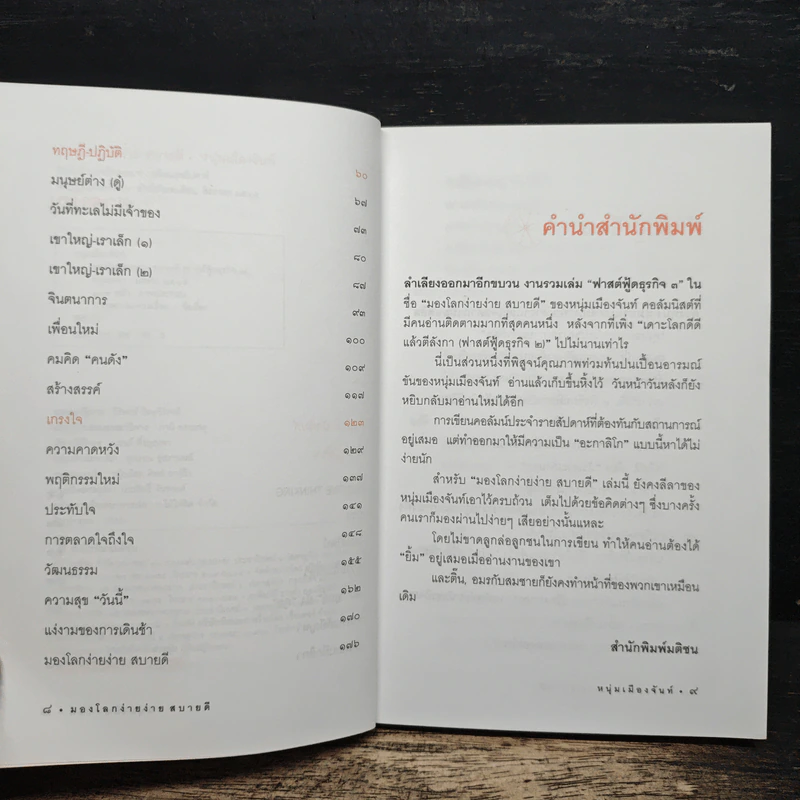 ทฤษฎี-ปฏิบัติ ๖๐
มนุษย์ต่าง (ดู๋) ๖๗
วันที่ทะเลไม่มีเจ้าของ ๗๓
เขาใหญ่-เราเล็ก (๑) ๘๐
เขาใหญ่-เราเล็ก (๒) ๘๗
จินตนาการ ๙๓
เพื่อนใหม่ ๑๐๐
คมคิด “คนดัง” ๑๐๙
สร้างสรรค์ ๑๑๗
เกรงใจ ๑๒๓
ความคาดหวัง ๑๒๙
พฤติกรรมใหม่ ๑๓๗
ประทับใจ ๑๔๑
การตลาดใจถึงใจ ๑๔๘
วัฒนธรรม ๑๕๕
ความสุข “วันนี้” ๑๖๒
แง่งามของการเดินช้า ๑๗๐
มองโลกง่ายง่าย สบายดี ๑๗๖
๘ • มองโลกง่ายง่าย สบายดี
คำนำสำนักพิมพ์
ลำเลียงออกมาอีกขบวน งานรวมเล่ม “ฟาสต์ฟู้ดธุรกิจ ๓” ใน
ชื่อ “มองโลกง่ายง่าย สบายดี” ของหนุ่มเมืองจันท์ คอลัมนิสต์ที่
มีคนอ่านติดตามมากที่สุดคนหนึ่ง หลังจากที่เพิ่ง “เดาะโลกดีดี
แล้วตีลังกา (ฟาสต์ฟู้ดธุรกิจ ๒)” ไปไม่นานเท่าไร
นี่เป็นส่วนหนึ่งที่พิสูจน์คุณภาพท่วมท้นปนเปื้อนอารมณ์
ขันของหนุ่มเมืองจันท์ อ่านแล้วเก็บขึ้นหิ้งไว้ วันหน้าวันหลังก็ยัง
หยิบกลับมาอ่านใหม่ได้อีก
การเขียนคอลัมน์ประจำรายสัปดาห์ที่ต้องทันกับสถานการณ์
อยู่เสมอ แต่ทำออกมาให้มีความเป็น “อะกาลิโก” แบบนี้หาได้ไม่
ง่ายนัก
สำหรับ “มองโลกง่ายง่าย สบายดี” เล่มนี้ ยังคงลีลาของ
หนุ่มเมืองจันท์เอาไว้ครบถ้วน เต็มไปด้วยข้อคิดต่างๆ ซึ่งบางครั้ง
คนเราก็มองผ่านไปง่ายๆ เสียอย่างนั้นแหละ
โดยไม่ขาดลูกล่อลูกชนในการเขียน ทำให้คนอ่านต้องได้
“ยิ้ม” อยู่เสมอเมื่ออ่านงานของเขา
และติ๋น, อมรกับสมชายก็ยังคงทำหน้าที่ของพวกเขาเหมือน
เดิม
สำนักพิมพ์มติชน
หนุ่มเมืองจันท์ • ๙